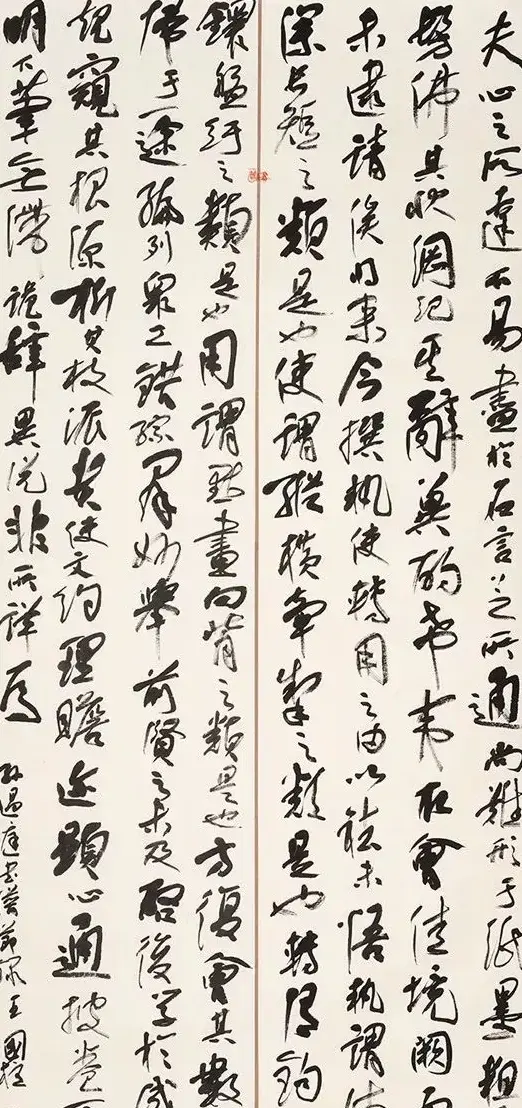 夫心之所達不易盡於名言言之所通尚難形于紙墨粗
髣彿其狀綱紀其辭冀酌希夷取會佳境闕而
未逮請俟將來今撰執使轉用之由以祛未悟執謂
深長短之類是也使謂縱橫牽掣之類是也轉謂鈎
鐶盤紆之類是也用謂點畫向背之類是也方復會其數
歸于一途編列眾工錯綜群妙舉前賢之未及啓後學於成
規窺其根源析其枝派貴使文約理贍迹顯心通披卷可
明下筆無滯詭辭異說非所詳焉
孫過庭書譜節錄王國